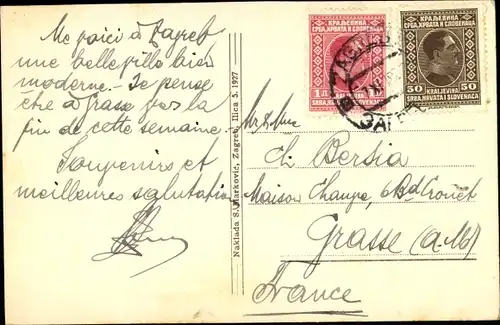 Me voici à Zagreb
une belle ville bien
moderne. - Je pense
être à Grasse par la
fin de cette semaine.
Souvenirs et
meilleures salutations
Naklada S. Marković, Zagreb, Ilica 5. 1927
КРАЉЕВИНА
СРБА, ХРВАТА И СЛОВЕНАЦА
1
KRALJEVINA
SRBA, HRVATA I SLOVENACA
КРАЉЕВИНА
СРБА, ХРВАТА И СЛОВЕНАЦА
50 50
KRALJEVINA
SRBA, HRVATA I SLOVENACA
ZAGREB
ЗАГРЕБ
Mr & Mme
Ch Bersia
Maison Changa, 6 Bd Crouët
Grasse (A.M)
France